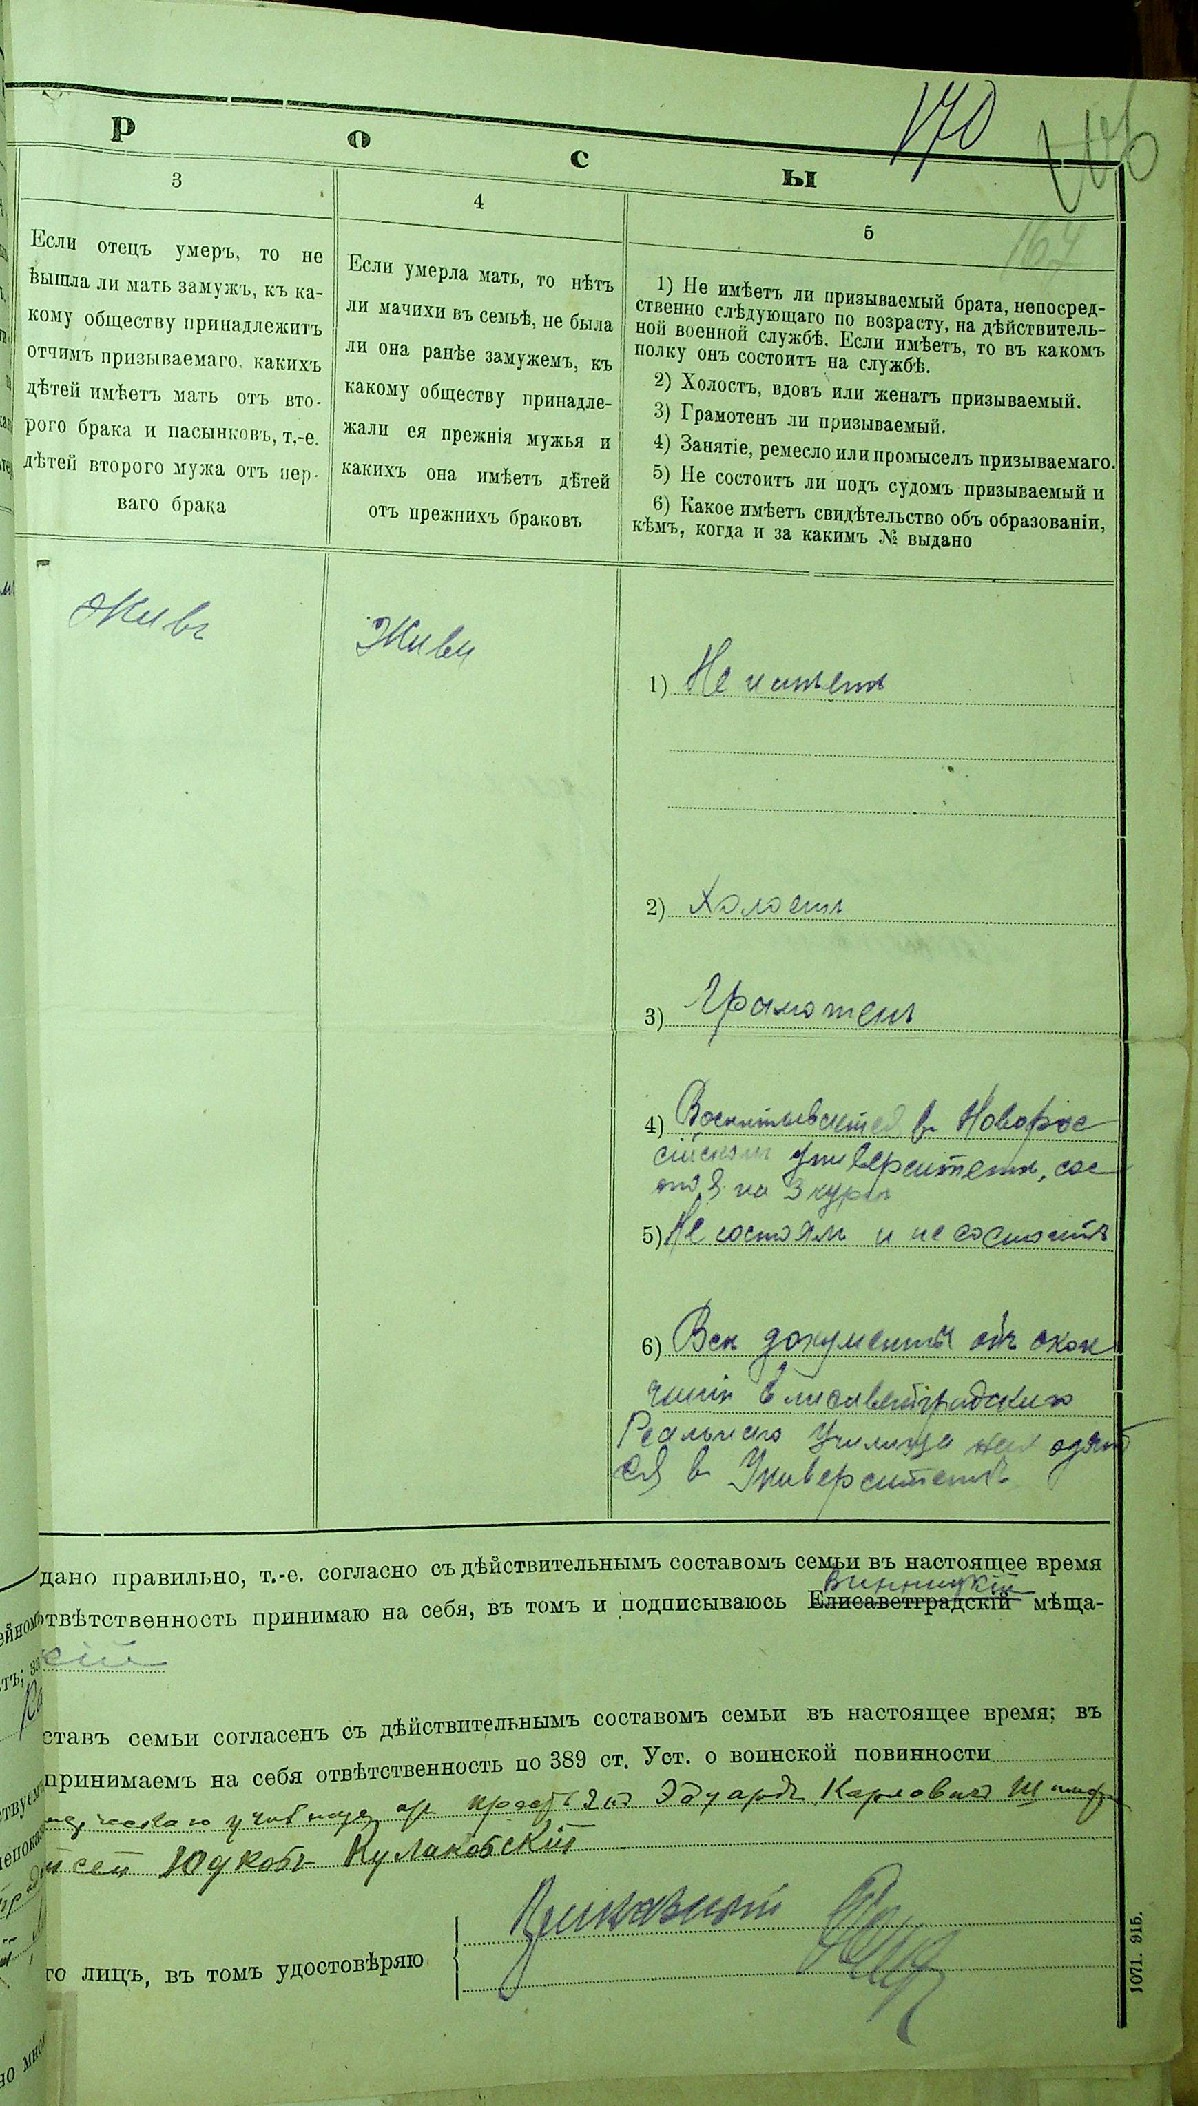 170
167
Р О С Ы
3
Если отецъ умеръ, то не
вышла ли мать замужъ, къ ка-
кому обществу принадлежитъ
отчимъ призываемаго, какихъ
дѣтей имѣетъ мать отъ вто-
рого брака и пасынковъ, т.-е.
дѣтей второго мужа отъ пер-
ваго брака
4
Если умерла мать, то нѣтъ
ли мачихи въ семьѣ, не была
ли она ранѣе замужемъ, къ
какому обществу принадле-
жали ея прежнія мужья и
какихъ она имѣетъ дѣтей
отъ прежнихъ браковъ
5
1) Не имѣетъ ли призываемый брата, непосред-
ственно слѣдующаго по возрасту, на дѣйствитель-
ной военной службѣ. Если имѣетъ, то въ какомъ
полку онъ состоитъ на службѣ.
2) Холостъ, вдовъ или женатъ призываемый.
3) Грамотенъ ли призываемый.
4) Занятіе, ремесло или промыселъ призываемаго.
5) Не состоитъ ли подъ судомъ призываемый и
6) Какое имѣетъ свидѣтельство объ образованіи,
кѣмъ, когда и за какимъ № выдано
Живъ
Жива
1) Не имѣетъ
2) Холостъ
3) Грамотенъ
4) Воспитывается в Новорос
сійскомъ университетѣ, сос
тоя на 3 курсѣ
5) Не состоялъ и не состоитъ
6) Всѣ документы объ окон
чаніи Елисаветградскаго
Реальнаго Училища находят
ся в Университетѣ
дано правильно, т.-е. согласно съ дѣйствительнымъ составомъ семьи въ настоящее время
Винницкій
отвѣтственность принимаю на себя, въ томъ и подписываюсь Елисаветградскій мѣща-
скій
ставъ семьи согласенъ съ дѣйствительнымъ составомъ семьи въ настоящее время; въ
принимаемъ на себя отвѣтственность по 389 ст. Уст. о воинской повинности
Эдуардъ Карловичъ
Юдковъ Кулаковскій
го лицъ, въ томъ удостовѣряю
1071. 915.